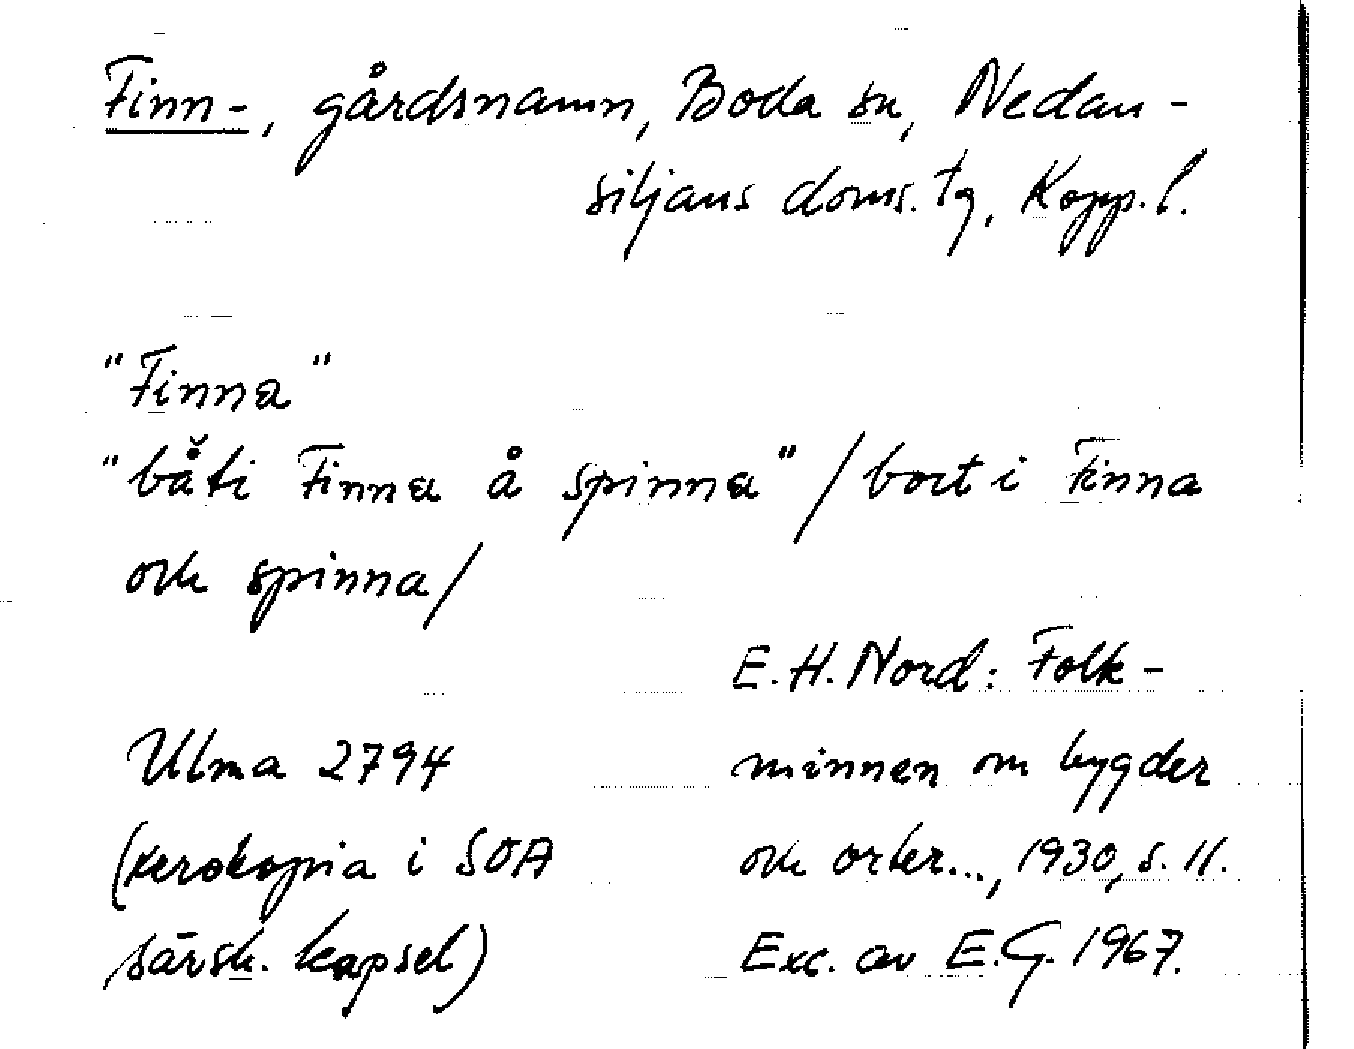 Finn-, gårdsnamn, Boda sn, Nedan-
siljans doms. tg, Kopp. l.
"Finna"
"bå̆ti Finna å spinna" / bort i Finna
och spinna/
E. H. Nord: Folk-
Ulma 2794 minnen om bygder
(xerokopia i SOA och orter..., 1930, s. 11.
särsk. kapsel) Exc. av E.G. 1967.